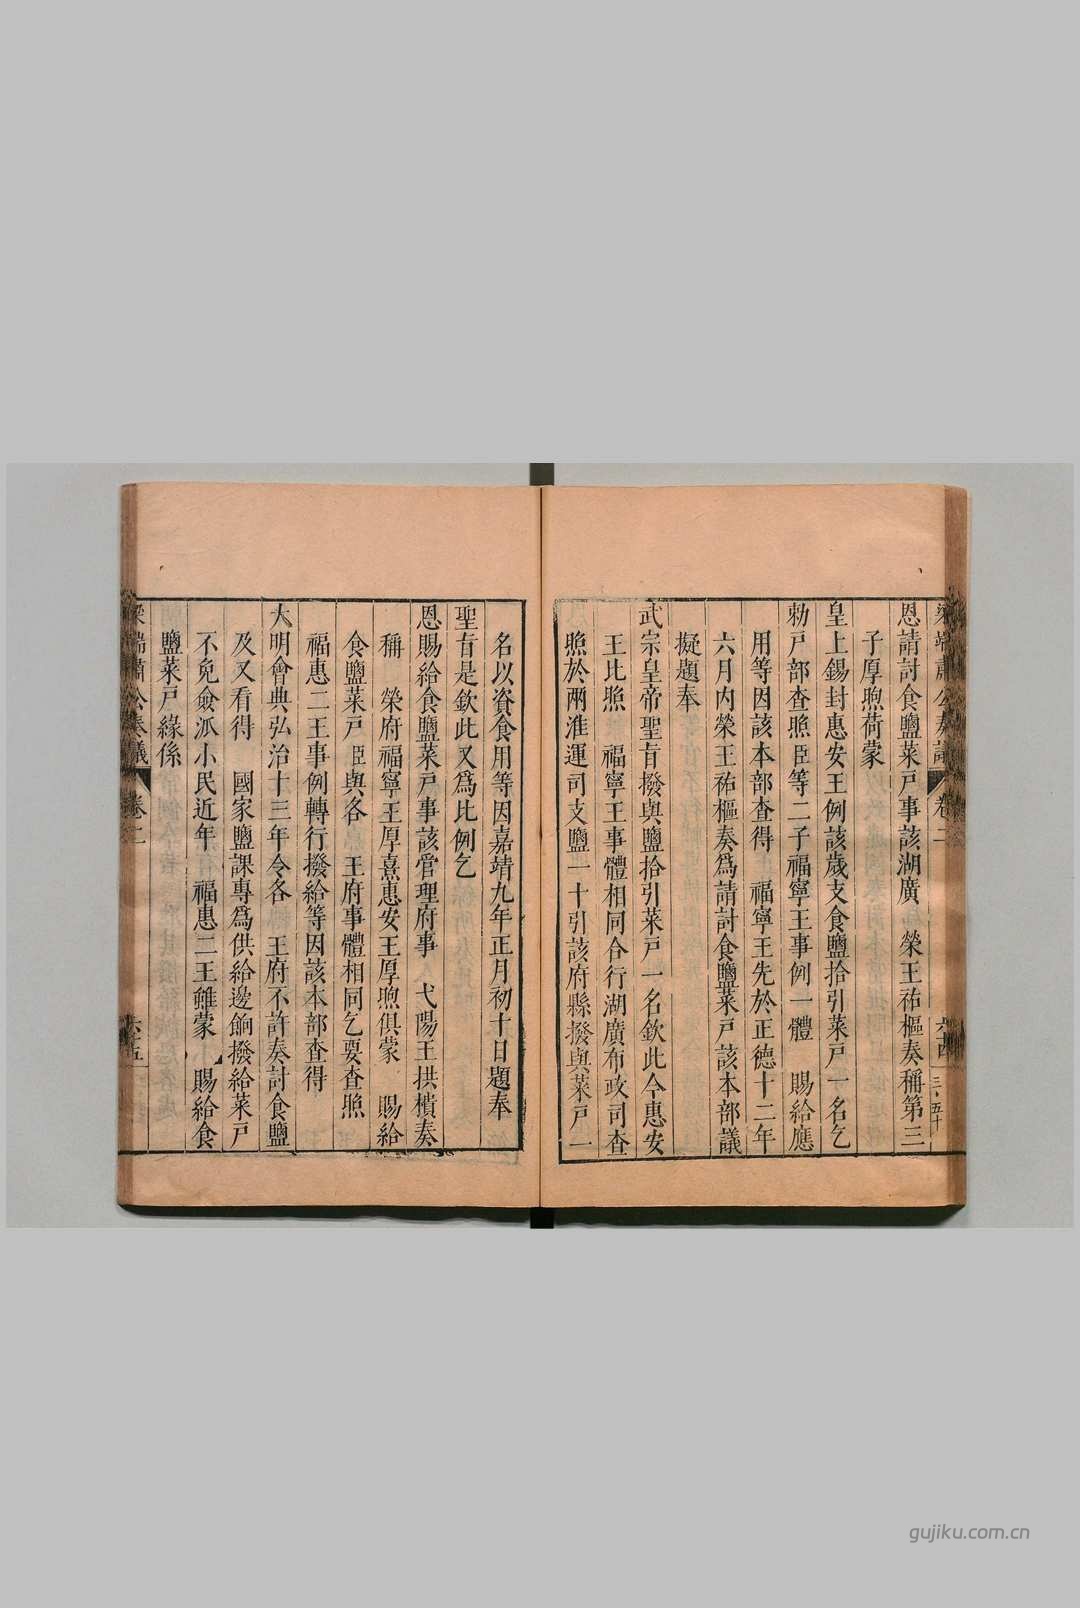 梁端肅公奏議 卷二 六十四
恩請討食鹽菜戸事該湖廣 榮王祐樞奏稱第三
子厚煦荷蒙
皇上錫封惠安王例該歲支食鹽拾引菜戸一名乞
勑戸部查照臣等二子福寧王事例一體 賜給應
用等因該本部查得 福寧王先於正德十二年
六月内榮王祐樞奏爲請討食鹽菜戸該本部議
擬題奉
武宗皇帝聖旨撥與鹽拾引菜戸一名欽此今惠安
王比照 福寧王事體相同合行湖廣布政司查
照於兩淮運司支鹽一十引該府縣撥與菜戸一
名以資食用等因嘉靖九年正月初十日題奉
聖旨是欽此又爲比例乞
恩賜給食鹽菜戸事該管理府事 弋陽王拱樻奏
稱 榮府福寧王厚熹惠安王厚煦俱蒙 賜給
食鹽菜戸臣與各 王府事體相同乞要查照
福惠二王事例轉行撥給等因該本部查得
大明會典弘治十三年令各 王府不許奏討食鹽
及又看得 國家鹽課專爲供給邊餉撥給菜戸
不免僉派小民近年 福惠二王雖蒙 賜給食
鹽菜戸緣係
梁端肅公奏議 卷二 六十五
gujiku.com.cn